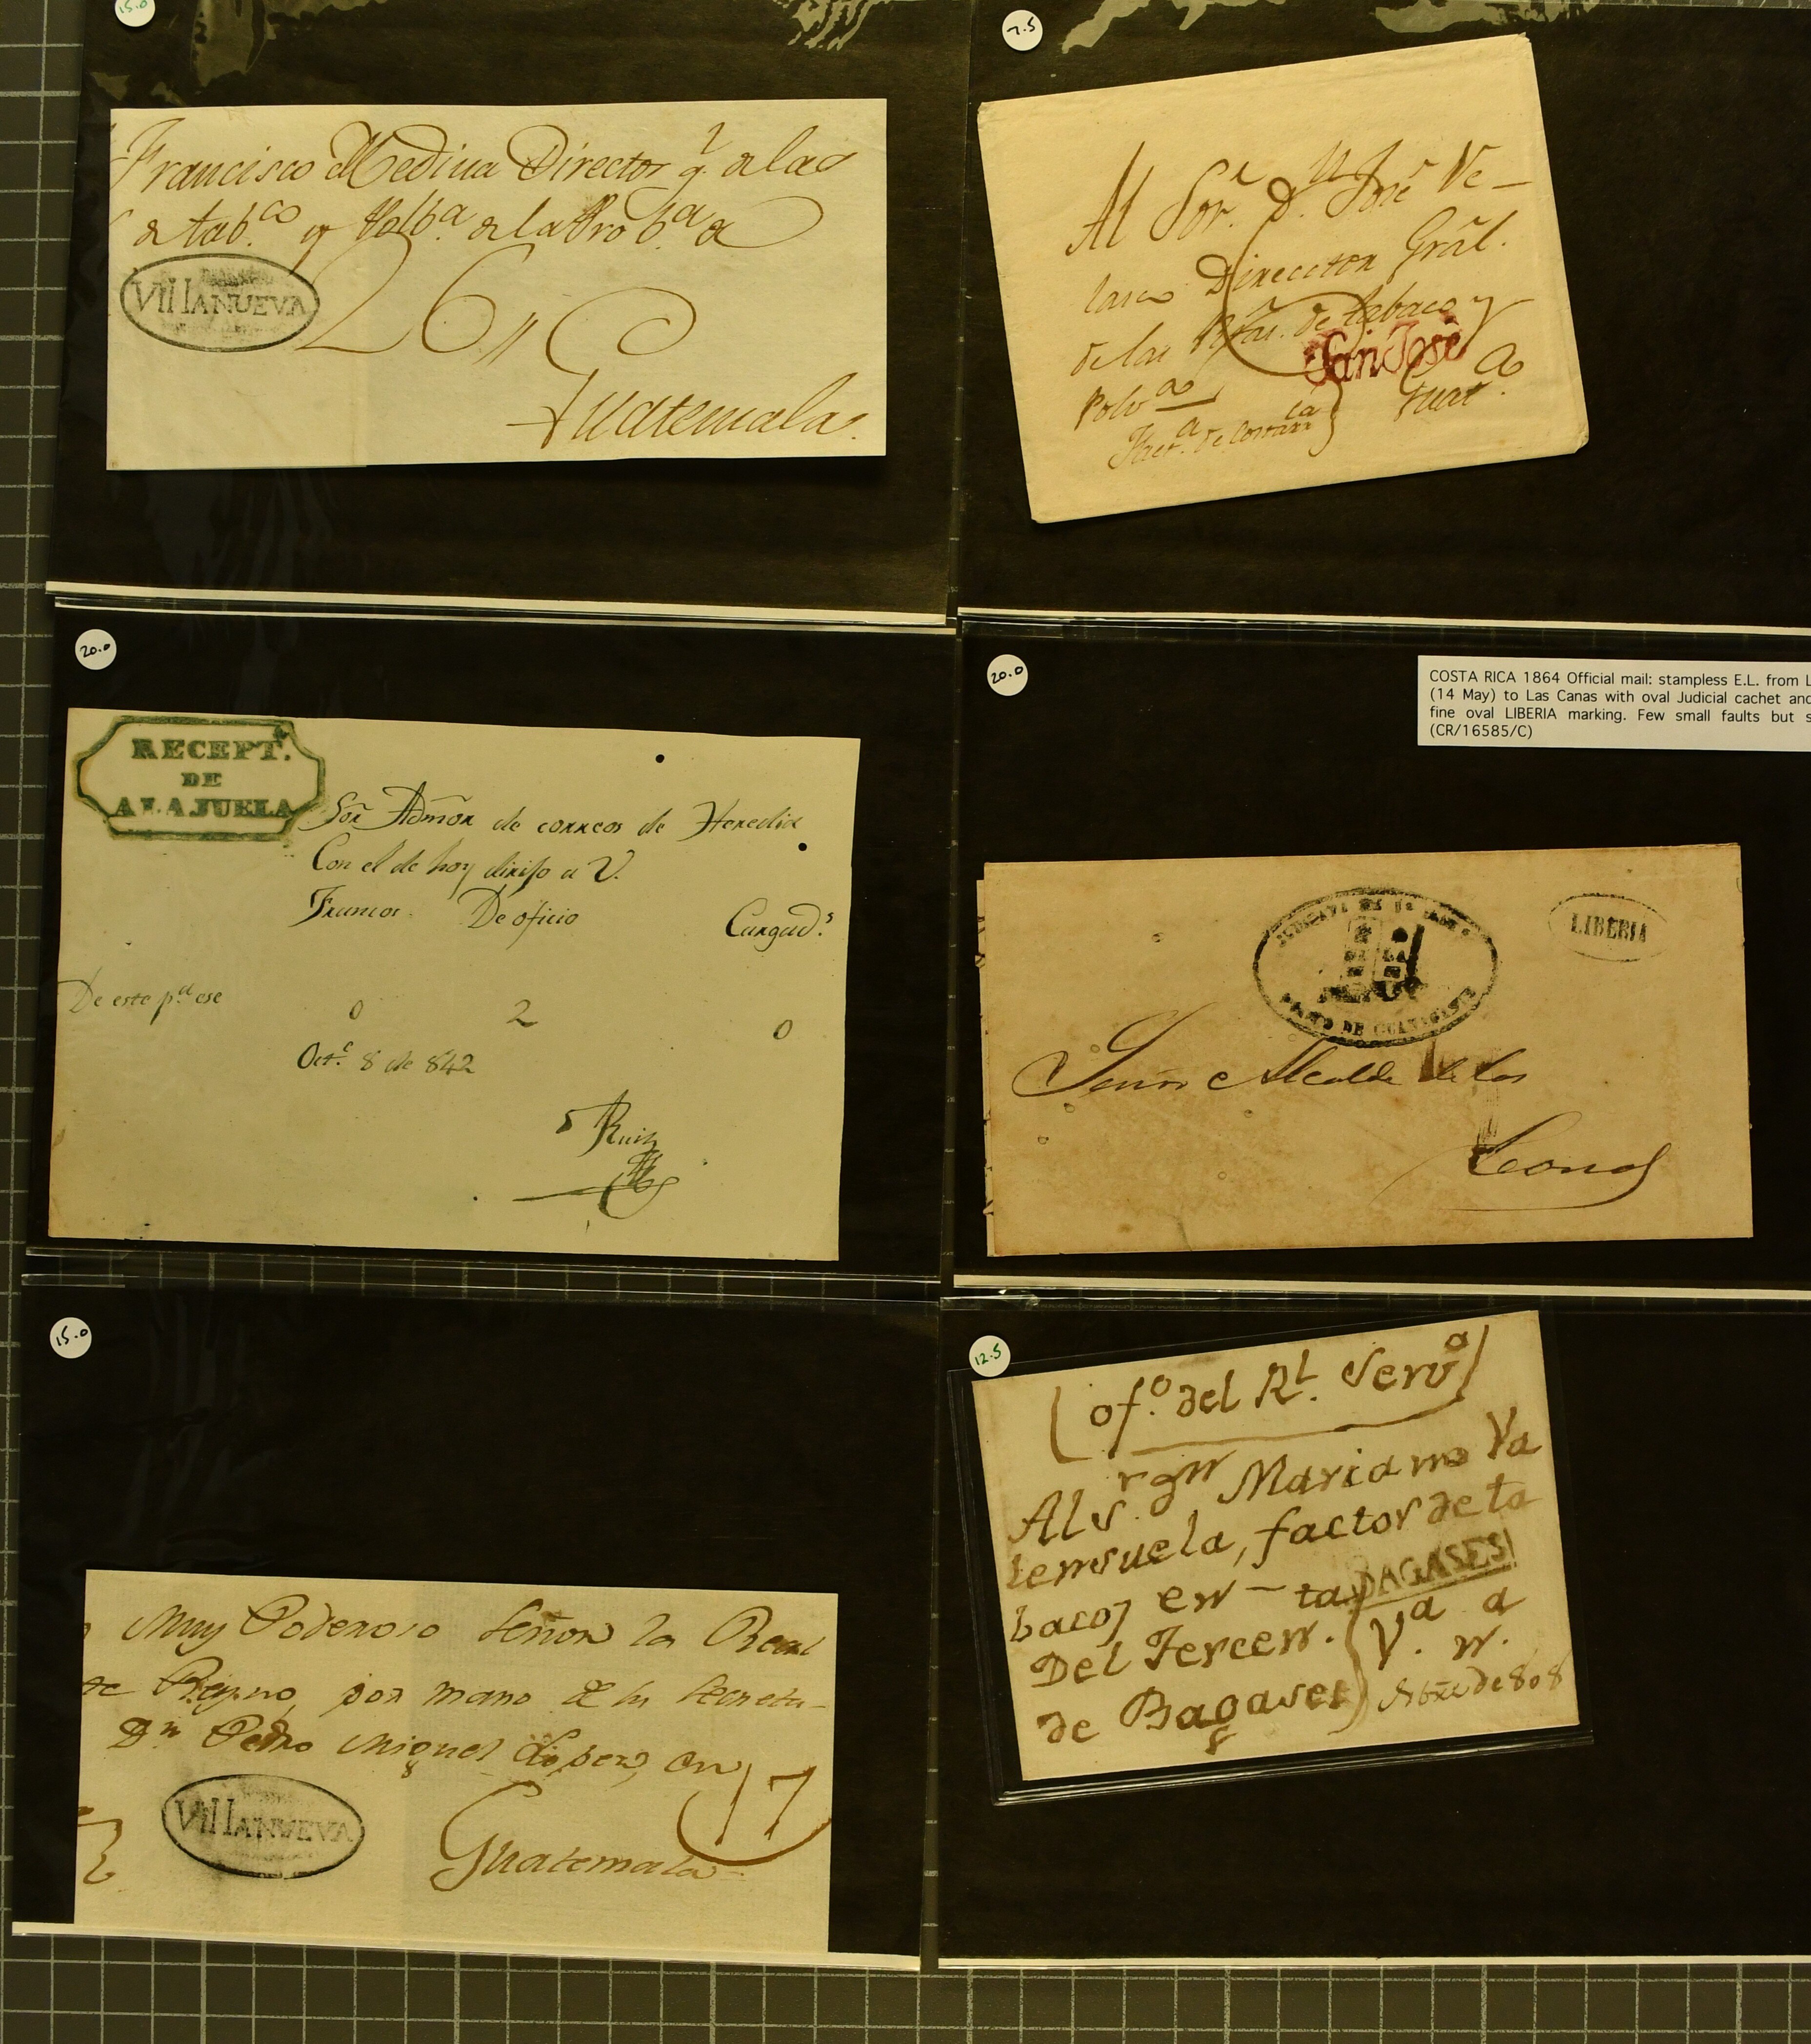 15.0
Francisco Medina Director g.l de las
de tab.co y Polb.a de la
VIllANUEVA
26
Guatemala.
7.5
Al Sor. Dn. José Ve-
lasco Director Gral.
de las Rtas. de tabaco y
San José
Polv.a
Fact.a de Costarrica
Guat.a
20.0
RECEPT.
DE
ALAJUELA
Sor Admor de correos de Heredia
Con el de hoy dirijo a V.
Francos. De oficio Cargad.s
De este
0 2 0
Oct.e 8 de 842
Ruiz
20.0
COSTA RICA 1864 Official mail: stampless E.L. from L
(14 May) to Las Canas with oval Judicial cachet and
fine oval LIBERIA marking. Few small faults but s
(CR/16585/C)
DE GUANACASTE
LIBERIA
Señor Alcalde de las
Canas
15.0
Muy Poderoso Señor la Real
de Reyno, por mano de su Secreta-
Dn Pedro Miguel Lopez, en
17
VIllANUEVA
Guatemala
12.5
of.o del Rl. Servo
Al S.r Dn Mariano Va
lensuela, factor de ta
bacos en
BAGASES
Del Tercen. Va a
de Bagases V. N.
de 808